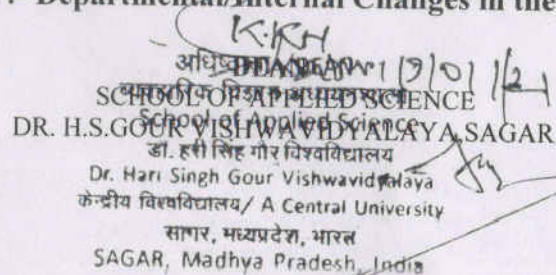 Departmental/Internal Changes in the
K.KH
अधिष्ठाता/DEAN
SCHOOL OF APPLIED SCIENCE
School of Applied Science
DR. H.S.GOUR VISHWAVIDYALAYA, SAGAR
डॉ. हरी सिंह गौर विश्वविद्यालय
Dr. Hari Singh Gour Vishwavidyalaya
केन्द्रीय विश्वविद्यालय/ A Central University
सागर, मध्यप्रदेश, भारत
SAGAR, Madhya Pradesh, India